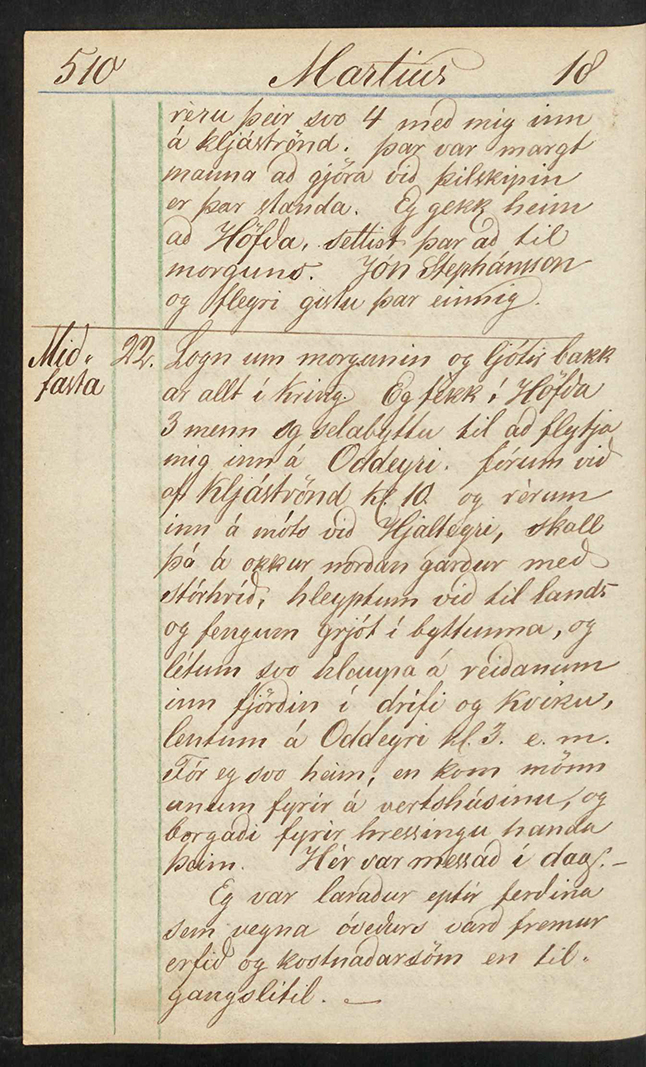 510 Martius 18
réru þeir svo 4 með mig inn
á Kljáströnd. Þar var margt
manna að gjöra við þilskipin
er þar standa. Eg gekk heim
að Höfða, settist þar að til
morguns. Jón Stephánsson
og fleyri gistu þar einnig.
Mið- 22. Logn um morgunin og ljótir bakk
fasta ar allt í kring. Eg fékk í Höfða
3 menn og selabyttu til að flytja
mig inn á Oddeyri. fórum við
af Kljáströnd kl. 10. og rérum
inn á móts við Hjalteyri, skall
þá á okkur norðan garður með
stórhríð, hleyptum við til lands
og fengum grjót í byttunna, og
létum svo hlaupa á reiðanum
inn fjörðin í drífi og kviku,
lentum á Oddeyri kl. 3. e. m.
Fór eg svo heim, en kom mönn
unum fyrir á vertshúsinu, og
borgaði fyrir hressingu handa
þeim. Hér var messað í dag. —
Eg var laraður eptir ferðina
sem vegna óveðurs varð fremur
erfið og kostnaðarsöm en til-
gangslítil. —